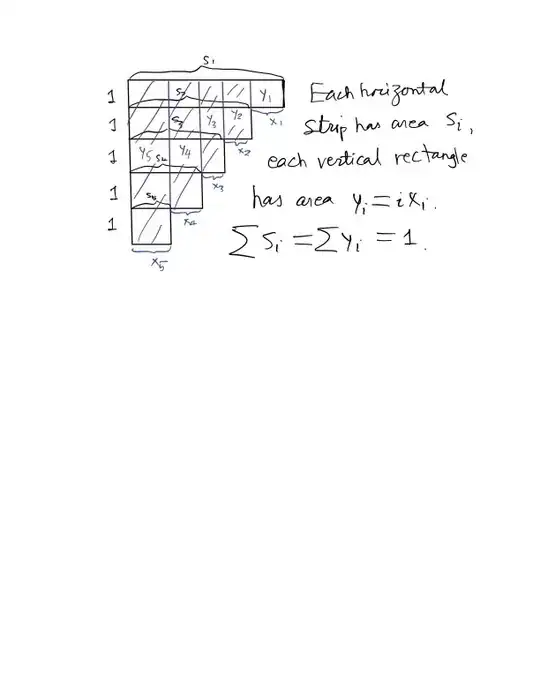 S₁
1 S₂ Y₁
1 S₃ Y₃ Y₂ X₁
1 Y₅ S₄ Y₄ X₂
1 S₅ X₃
1 X₄
X₅
Each horizontal
strip has area Sᵢ,
each vertical rectangle
has area yᵢ = i xᵢ.
∑ Sᵢ = ∑ yᵢ = 1.